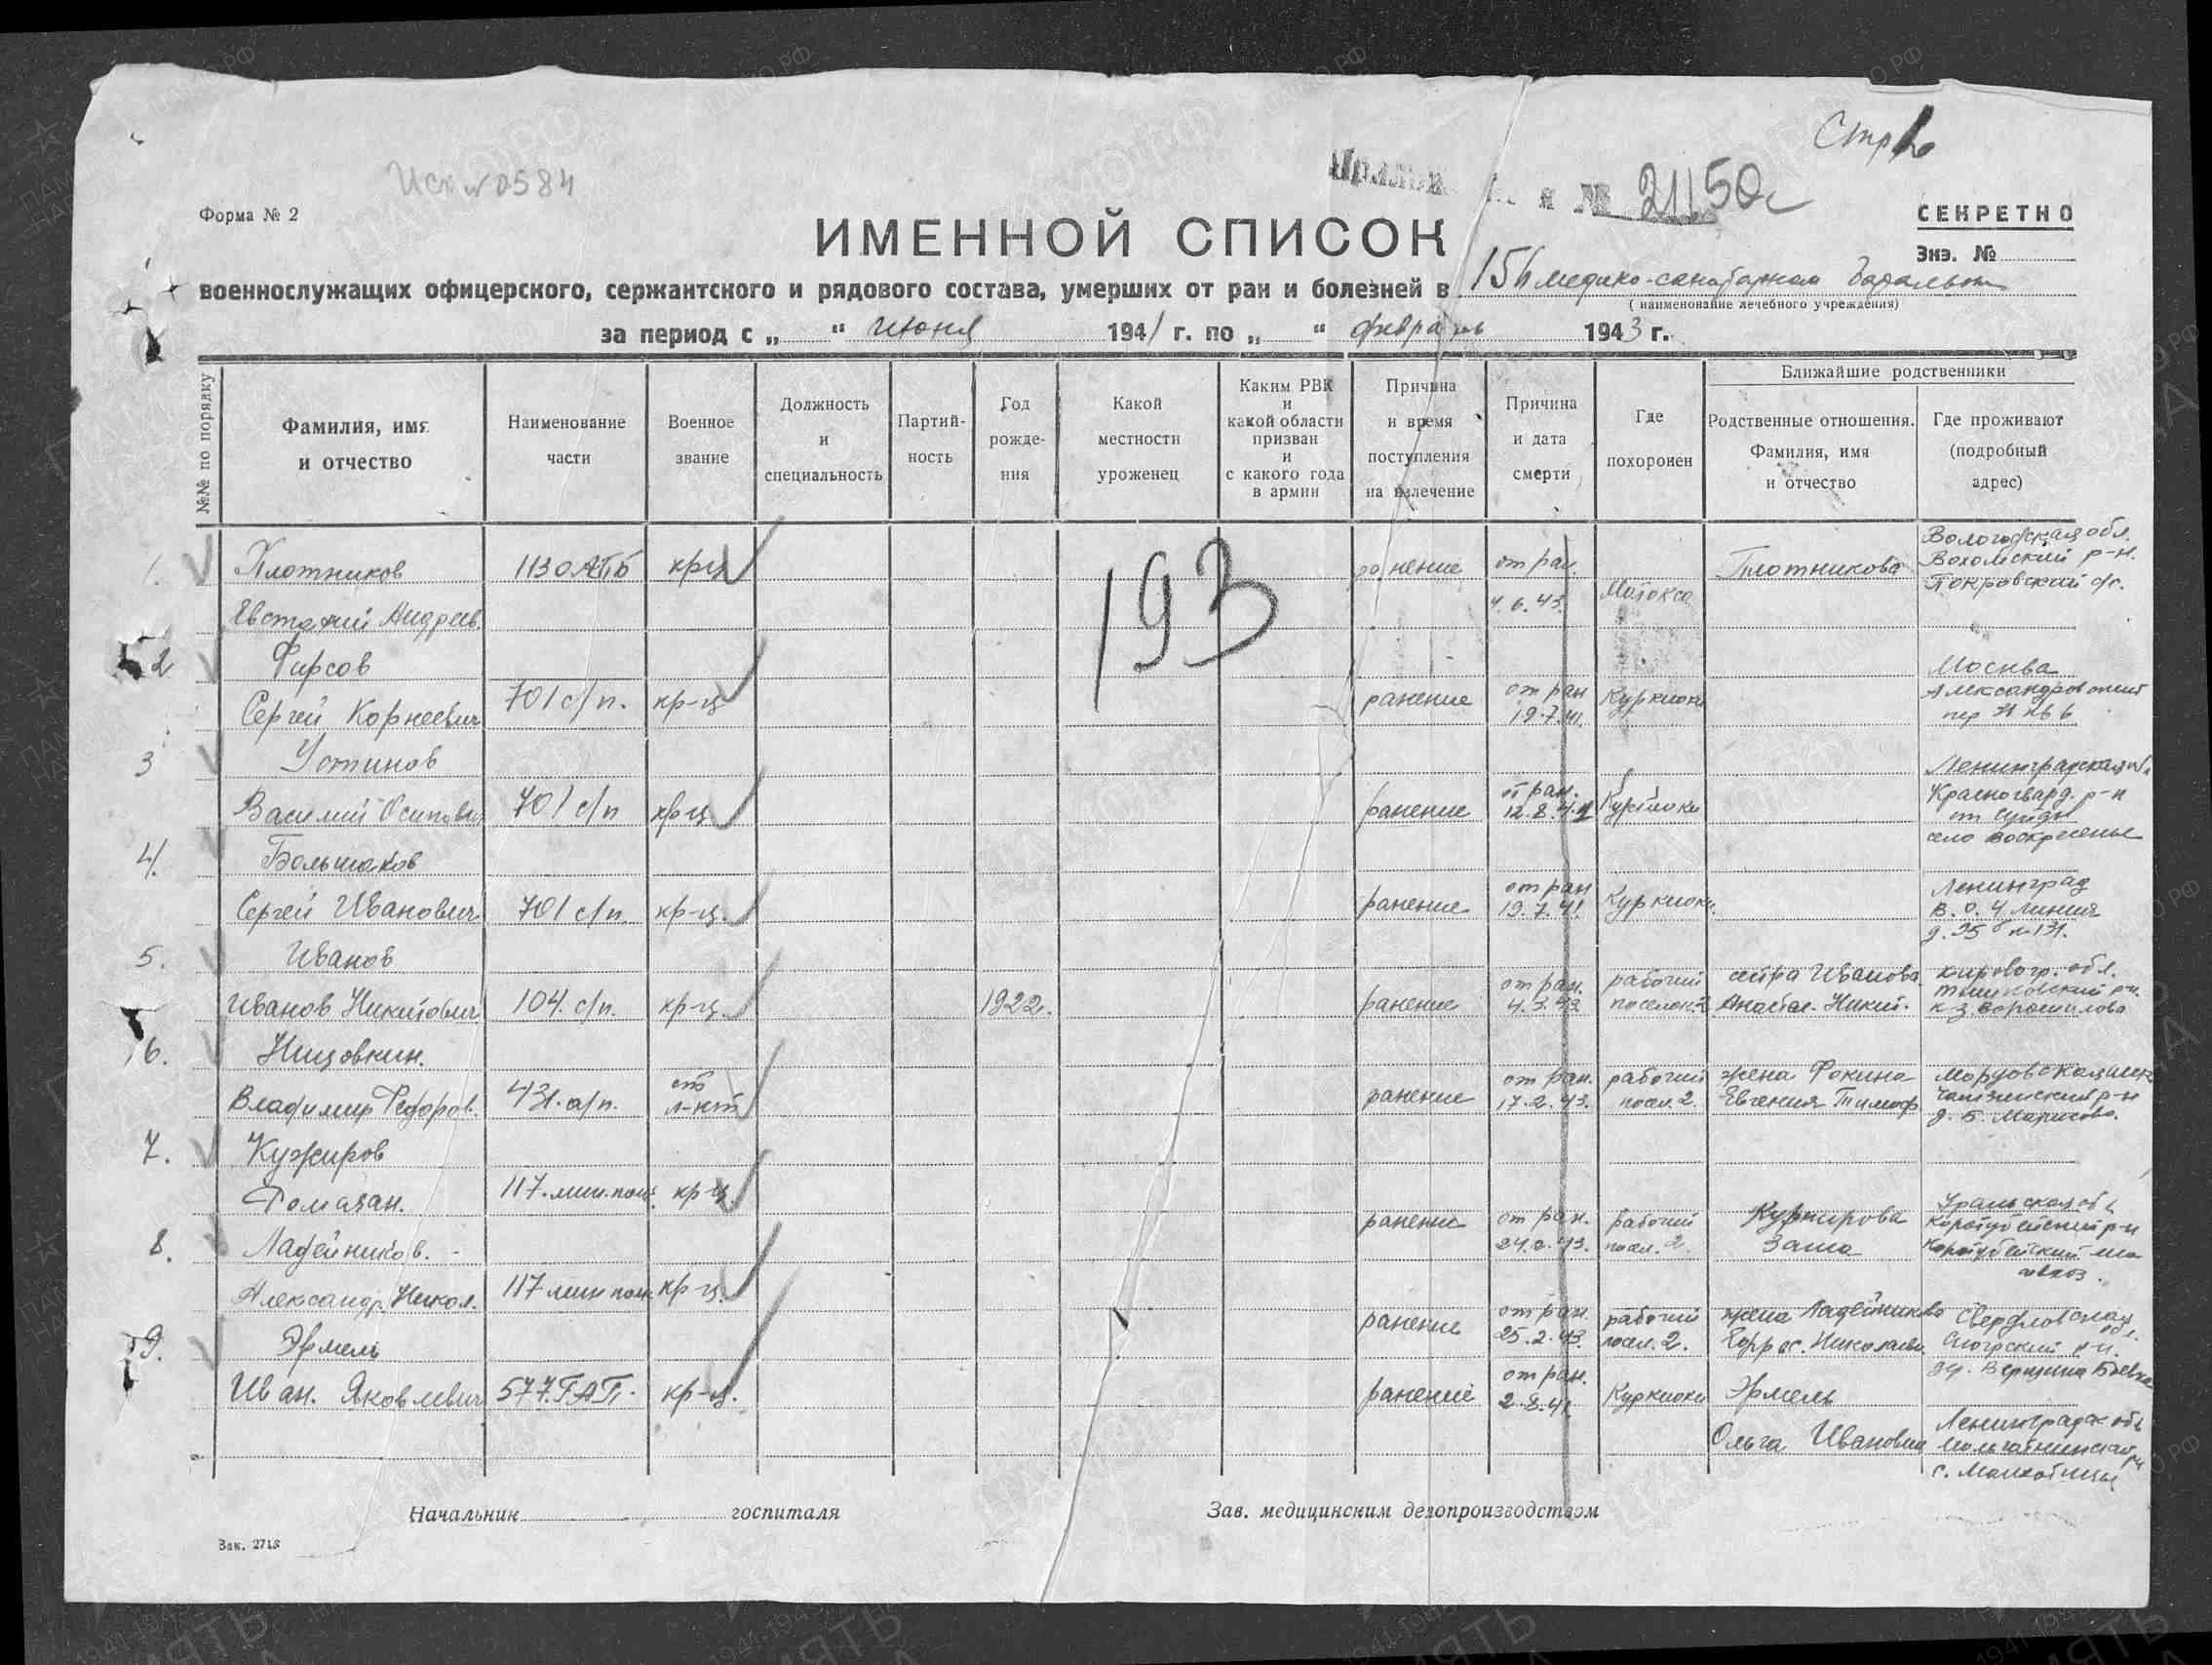 Стр
Исх № 0584
№ 21150с
Форма № 2
СЕКРЕТНО
ИМЕННОЙ СПИСОК
Экз. №
военнослужащих офицерского, сержантского и рядового состава, умерших от ран и болезней в 156 медико-санитарном
(наименование лечебного учреждения)
за период с „ “ июня 1941 г. по „ “ февраль 1943 г.
№№ по порядку
Фамилия, имя и отчество
Наименование части
Военное звание
Должность и специальность
Партийность
Год рождения
Какой местности уроженец
Каким РВК и какой области призван и с какого года в армии
Причина и время поступления на излечение
Причина и дата смерти
Где похоронен
Ближайшие родственники
Родственные отношения. Фамилия, имя и отчество
Где проживают (подробный адрес)
193
1. Плотников 113 ОАПБ кр-ц ранение от ран. Плотникова Вологодская обл. Вохомский р-н. Покровский с/с.
Евстафий Андреев. 4.6.43. Матокса
2 Фирсов Москва
Сергей Корнеевич 701 с/п. кр-ц ранение от ран 19.7.41. Куркиоки Александров пер кв 6
3 Устинов Ленинградская
Василий Осипович 701 с/п кр-ц ранение от ран. 12.8.41 Куркиоки Красногвард. р-н
село Воскресенье
4. Большаков
Сергей Иванович 701 с/п. кр-ц. ранение от ран 19.7.41. Куркиоки Ленинград В.О. 4 линия
д. 25 131.
5. Иванов
Иванов Никитович 104. с/п. кр-ц. 1922г. ранение от ран. 4.3.43 рабочий поселок 2 сестра Иванова Анастас. Никит. Кировогр. обл. к-з Ворошилова
6. Ницовкин.
Владимир Федоров. 431. а/п. ст л-нт ранение от ран. 17.2.43. рабочий посел. 2. жена Фокина Евгения Тимоф Мордовская Чамзинский р-н
7. Кужиров
Ромазан. 117. мин. полк кр-ц. ранение от ран. 24.2.43. рабочий посел. 2. Кужирова Уральская обл
8. Ладейников.
Александр Никол. 117 мин полк кр-ц. ранение от ран. 25.2.43. рабочий посел. 2. жена Ладейникова Свердловская обл.
9. Эрмель
Иван. Яковлевич 577. ГАП. кр-ц. ранение от ран. 2.8.41. Куркиоки Эрмель
Ольга Ивановна Ленинградск обл
Начальник госпиталя
Зав. медицинским делопроизводством
Зак. 2718